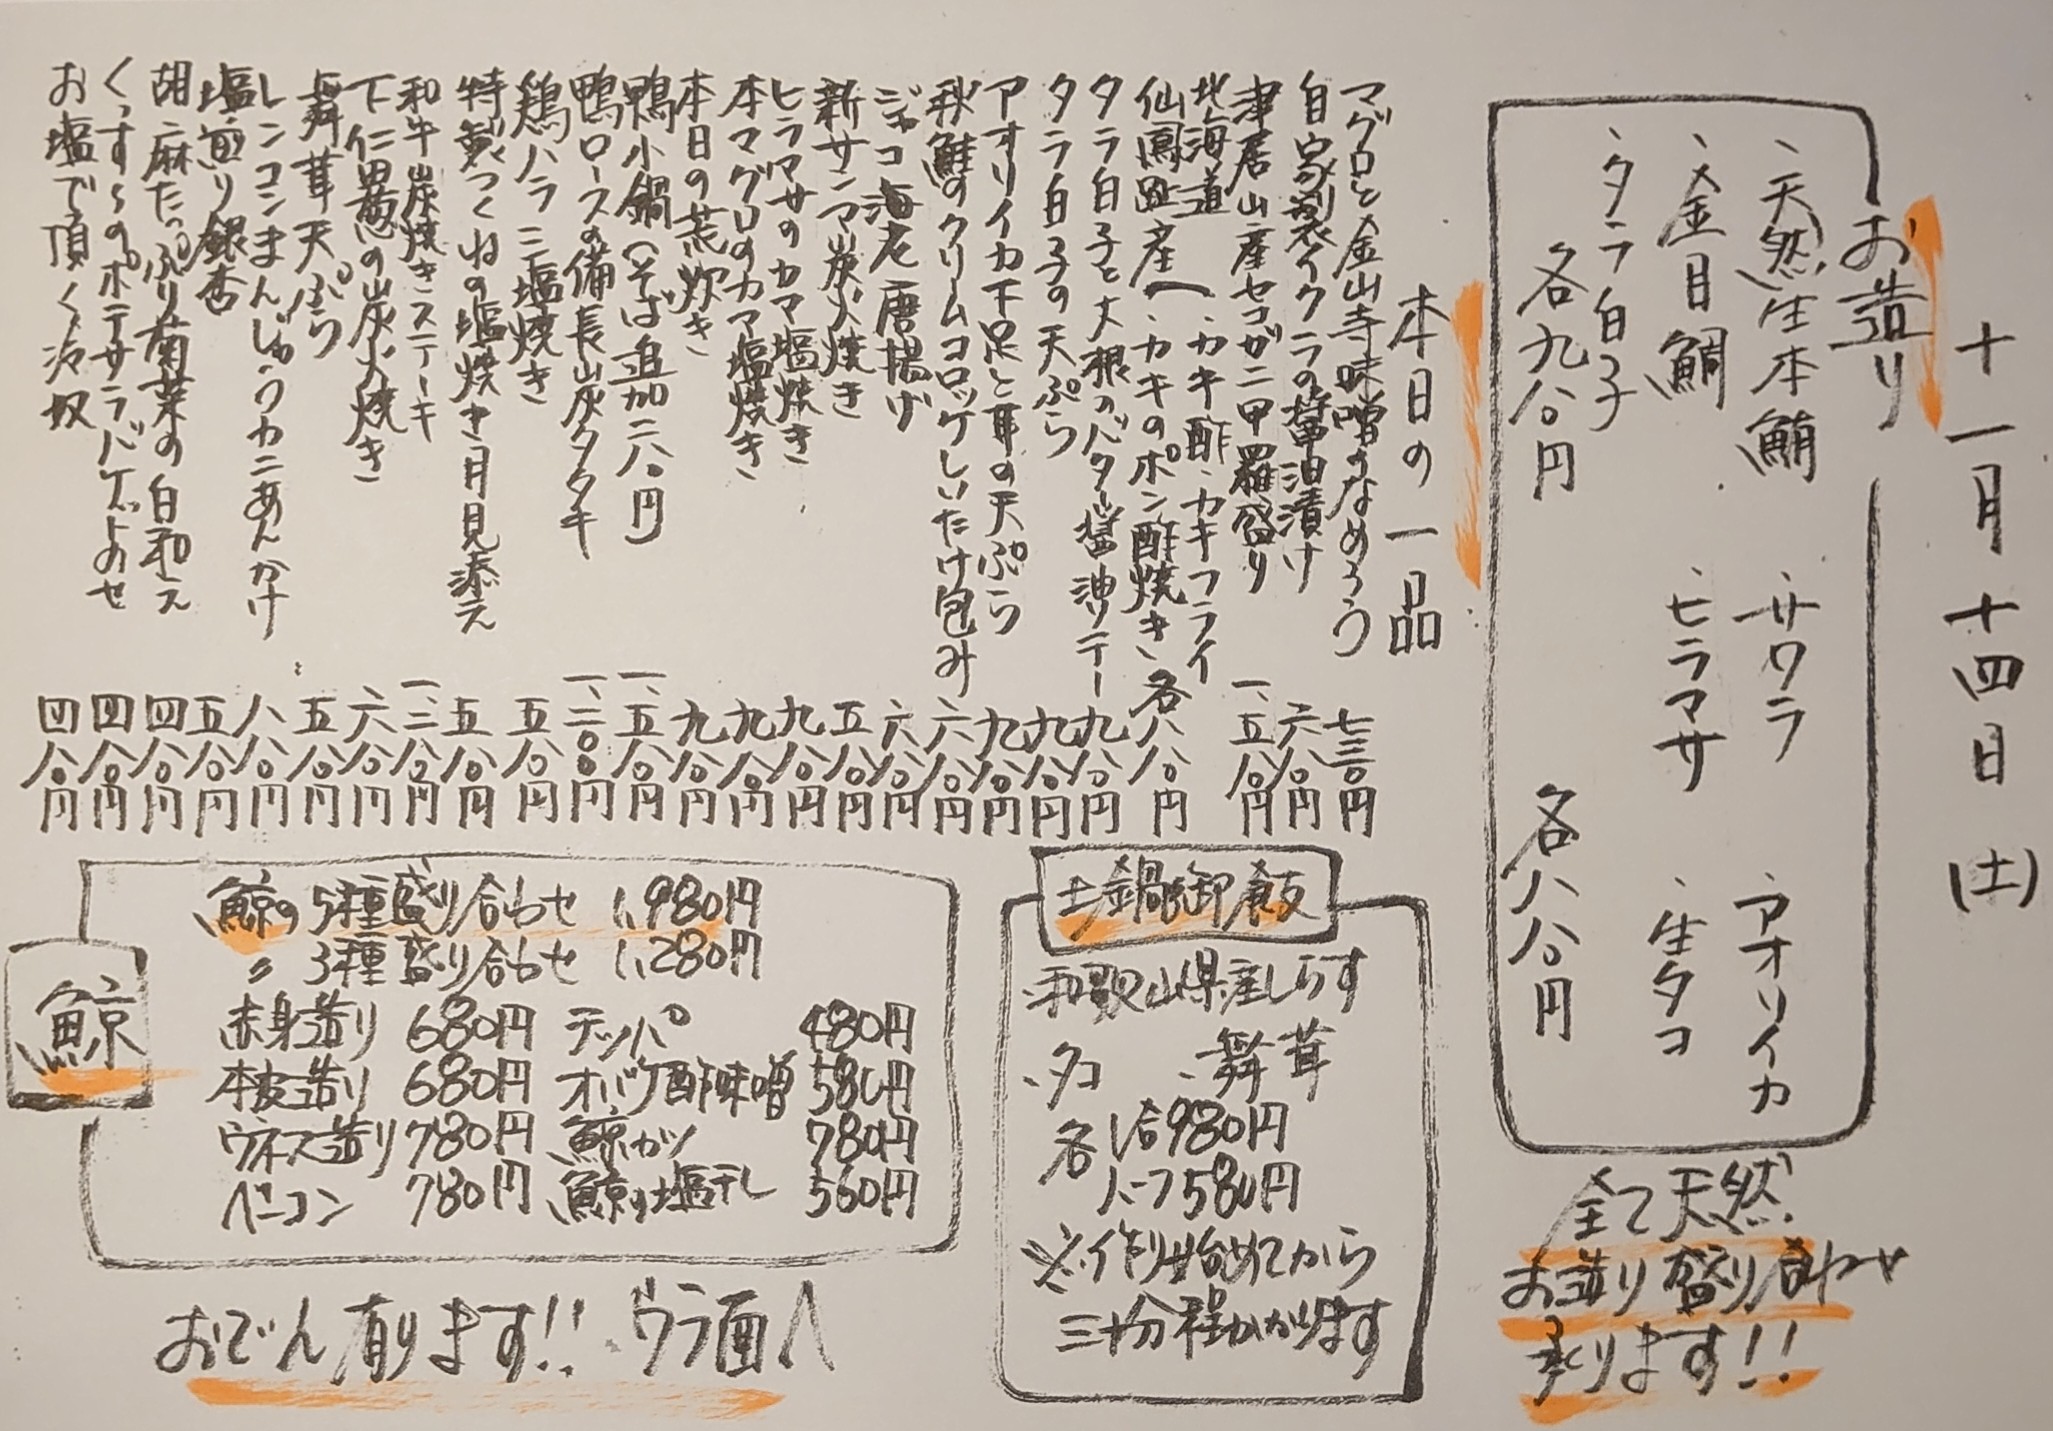 十一月十四日(土)
お造り
、天然生本鮪
、サワラ
、アオリイカ
、金目鯛
、ヒラマサ
、生タコ
、タラ白子
各九八〇円
各八八〇円
全て天然
お造り盛り合わせ
承ります!!
本日の一品
マグロと金山寺味噌のなめろう 七三〇円
自家製イクラの醤油漬け 六八〇円
津居山産セコガニ甲羅盛り 一、五八〇円
北海道
仙鳳趾産へ
、カキ酢、カキフライ
、カキのポン酢焼き、各八八〇円
タラ白子と大根のバター醤油ソテー 九八〇円
タラ白子の天ぷら 九八〇円
アオリイカ下足と耳の天ぷら 九八〇円
秋鮭のクリームコロッケしいたけ包み 六八〇円
ジャコ海老唐揚げ 六八〇円
新サンマ炭火焼き 五八〇円
ヒラマサのカマ塩焼き 九八〇円
本マグロのカマ塩焼き 九八〇円
本日の荒炊き 九八〇円
鴨小鍋(そば追加二八〇円 一、五八〇円
鴨ロースの備長炭タタキ 一、二〇〇円
鶏ハラミ塩焼き 五八〇円
特製つくねの塩焼き月見添え 五八〇円
和牛炭焼きステーキ 一、三八〇円
下仁田葱の炭火焼き 六八〇円
舞茸天ぷら 五八〇円
レンコンまんじゅうカニあんかけ 八八〇円
塩煎り銀杏 五八〇円
胡麻たっぷり菊菜の白和え 四八〇円
くっすんのポテサラバゲットのせ 四八〇円
お塩で頂く冷奴 四八〇円
土鍋御飯
、和歌山県産しらす
、タコ 、舞茸
各1合980円
ハーフ580円
※作り始めてから
三十分程かかります
鯨
鯨の5種盛り合わせ 1,980円
〃 3種盛り合わせ 1,280円
赤身造り 680円 テッパ 480円
本皮造り 680円 オバケ酢味噌 580円
ウネス造り 780円 鯨カツ 780円
ベーコン 780円 鯨の塩干し 560円
おでん有ります!! ウラ面へ